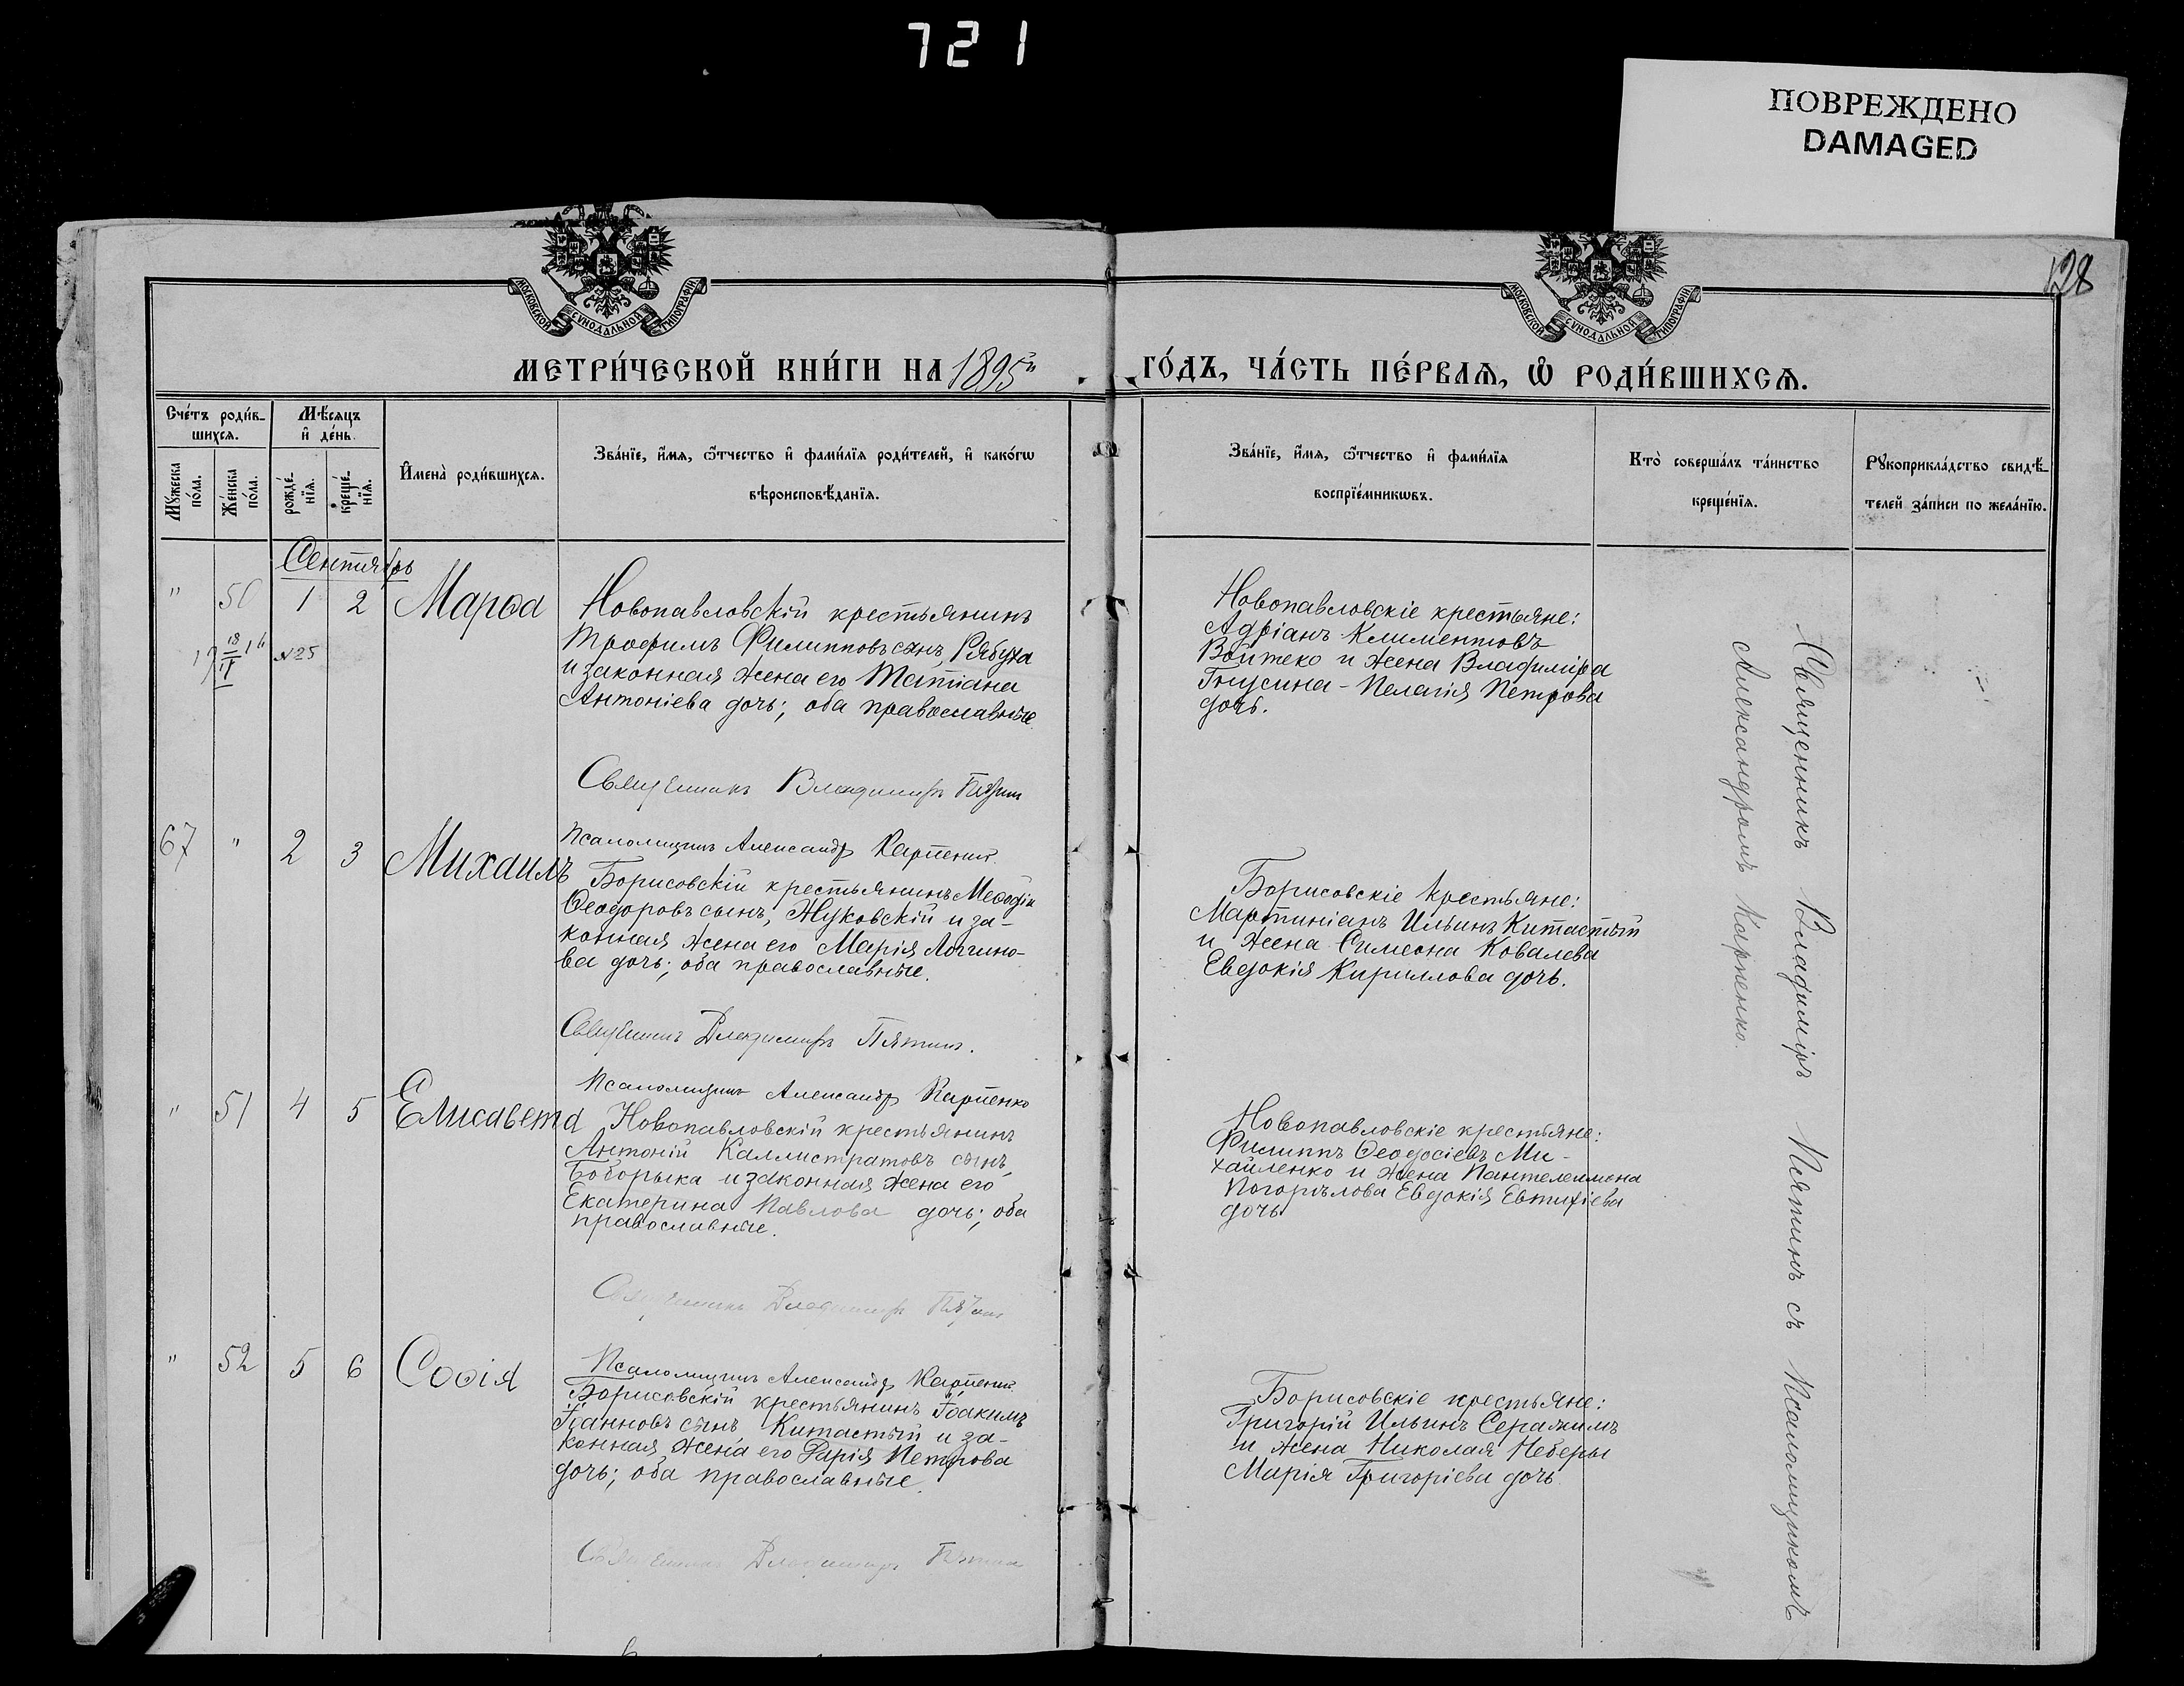 721
ПОВРЕЖДЕНО
DAMAGED
128
МОСКОВСКОЙ СѴНОДАЛЬНОЙ ТИПОГРАФІИ
МОСКОВСКОЙ СѴНОДАЛЬНОЙ ТИПОГРАФІИ
МЕТРИ́ЧЕСКОЙ КНИ́ГИ НА 1895й
ГО́ДЪ, ЧА́СТЬ ПЕ́РВАѦ, Ѽ РОДИ́ВШИХСѦ.
Сче́тъ роди́в-
шихсѧ.
Мѣ́сѧцъ
и҆ де́нь.
Мꙋ́жеска
по́ла.
Же́нска
по́ла.
рожде́-
нїѧ.
креще́-
нїѧ.
И҆мена̀ роди́вшихсѧ.
Зва́нїе, и҆́мѧ, ѻ҆́тчество и҆ фами́лїѧ роди́телей, и҆ како́гѡ
вѣроисповѣ́данїѧ.
Зва́нїе, и҆́мѧ, ѻ҆́тчество и҆ фами́лїѧ
воспрїе́мникѡвъ.
Кто̀ соверша́лъ та́инство
креще́нїѧ.
Рꙋкоприкла́дство свидѣ́-
телей за́писи по жела́нїю.
Сентябрь
" 50 1 2 Марѳа
№25
Новопавловскій крестьянинъ
Трофимъ Филипповъ сынъ, Рябуха
и законная жена его Татіана
Антоніева дочь; оба православные
Священникъ Владимиръ Пятин
Псаломщикъ Александр Карпенко
Новопавловскіе крестьяне:
Адріанъ Климентовъ
Войтеко и жена Владиміра
Гнусина - Пелагія Петрова
дочь.
67 " 2 3 Михаилъ
Борисовскій крестьянинъ Меѳодій
Ѳеодоровъ сынъ, Жуковскій и за-
конная жена его Марія Логгино-
ва дочь; оба православные.
Священникъ Владимиръ Пятин.
Псаломщикъ Александр Карпенко
Борисовскіе крестьяне:
Мартиніанъ Ильинъ Китастый
и жена Симеона Ковалева
Евдокія Кириллова дочь.
" 51 4 5 Елисавета
Новопавловскій крестьянинъ
Антоній Каллистратовъ сынъ,
Боборыка и законная жена его
Екатерина Павлова дочь; оба
православные.
Священникъ Владимиръ Пятин
Псаломщикъ Александр Карпенко
Новопавловскіе крестьяне:
Филиппъ Ѳеодосіевъ Ми-
хайленко и жена Пантелеимона
Погорѣлова Евдокія Евтихіева
дочь
" 52 5 6 Софія
Борисовскій крестьянинъ Іоакимъ
Іоанновъ сынъ Китастый и за-
конная жена его Дарія Петрова
дочь; оба православные.
Священникъ Владимиръ Пятин
Борисовскіе крестьяне:
Григорій Ильинъ Серажимъ
и жена Николая Неберы
Марія Григоріева дочь
Священникъ Владиміръ Пятинъ съ Псаломщикомъ
Александромъ Карпенко.